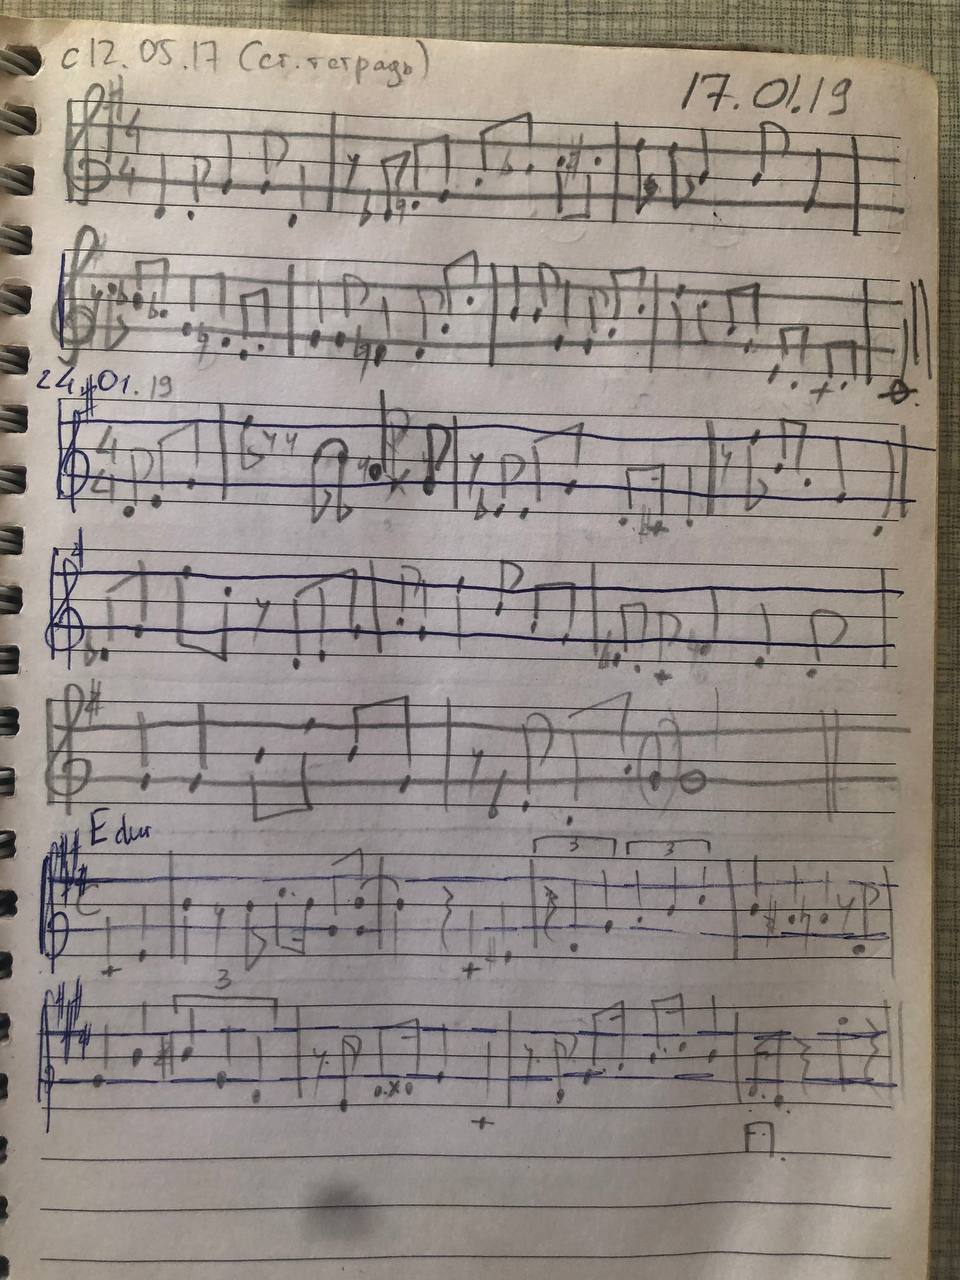 с 12.05.17 (ст. тетрадь)
17.01.19
4
4
24.01.19
4
4
E dur
3 3
3